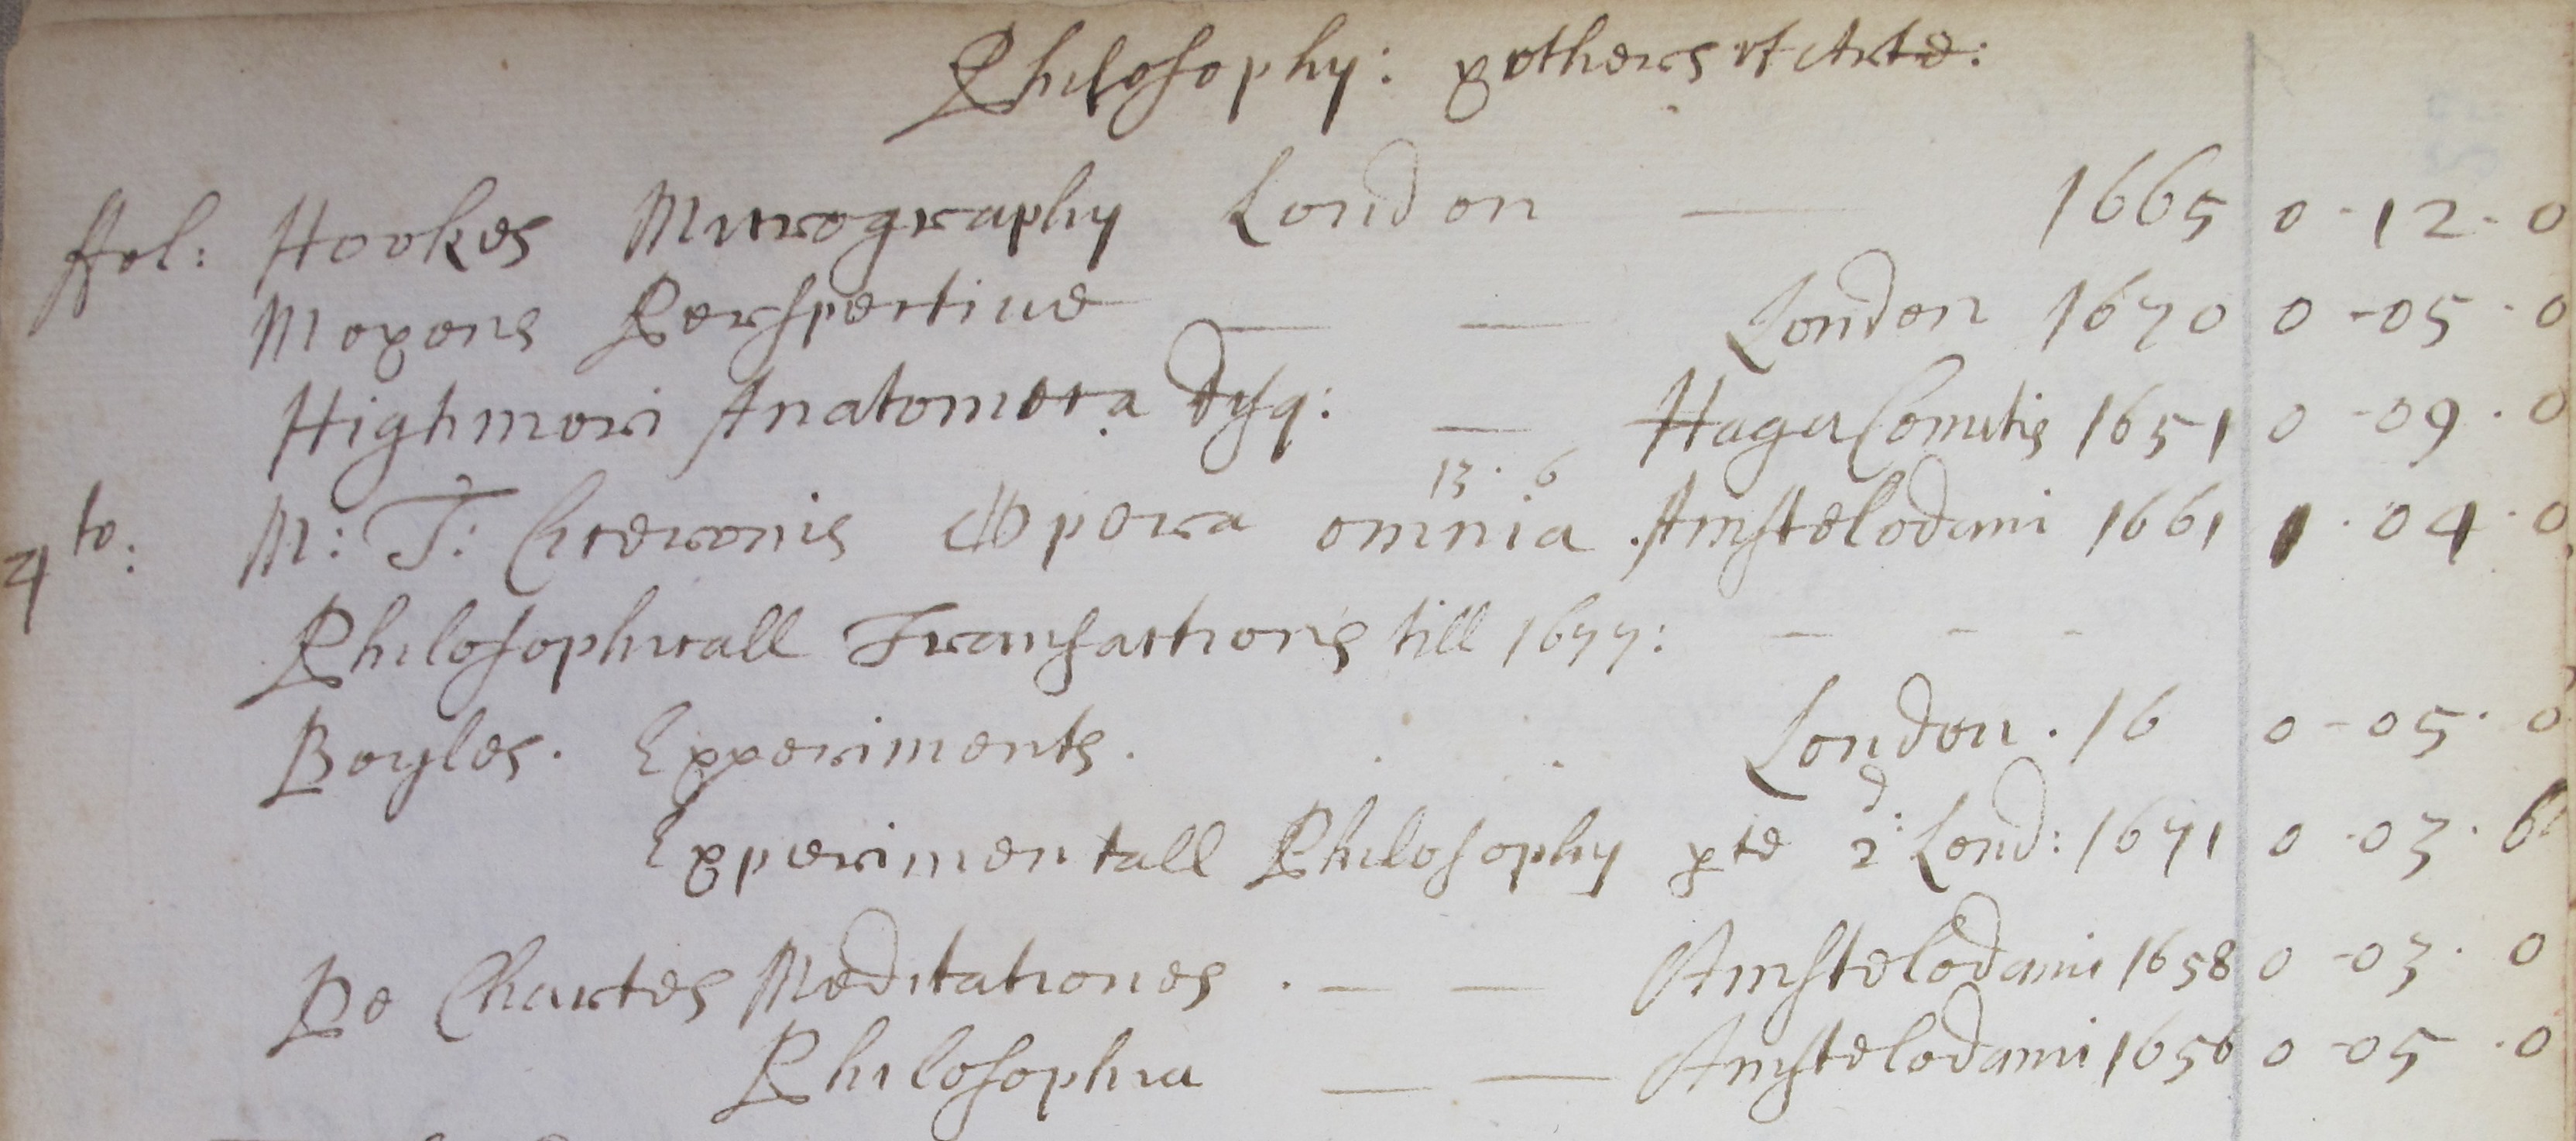 Philosophy: & others of Arte:
ffol: Hookes Micrography London — 1665 0-12-0
Moxons Perspective — — London 1670 0-05-0
Highmori Anatomica Dysq: — Hagæ Comitis 1651 0-09-0
13. 6
4to: M: T: Ciceronis Opera omnia Amstelodami 1661 1-04-0
Philosophicall Transactions till 1677: - - -
Boyles. Experiments. London. 16 0-05-0
Experimentall Philosophy pte 2d: Lond: 1671 0-03-6
De Chartes Meditationes . — — Amstelodami 1658 0-03-0
Philosophia — — Amstelodami 1656 0-05-0